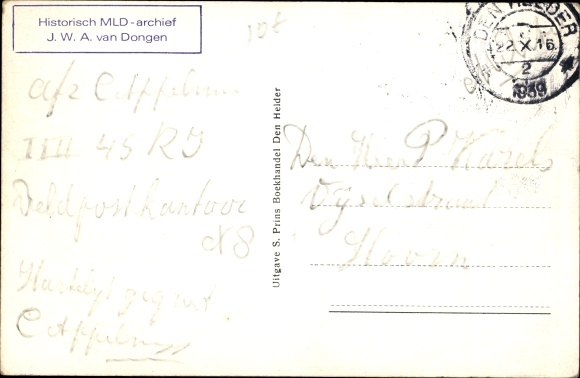 Historisch MLD-archief
J. W. A. van Dongen
10f
DEN HELDER
22.X.16
2
1939
Afz C Appelm
III 45 RI
Veldpostkantoor
N8
Hartelijk gegroet
C Appelm
Uitgave S. Prins Boekhandel Den Helder
Den Heer P Karels
Vijzelstraat
Hoorn